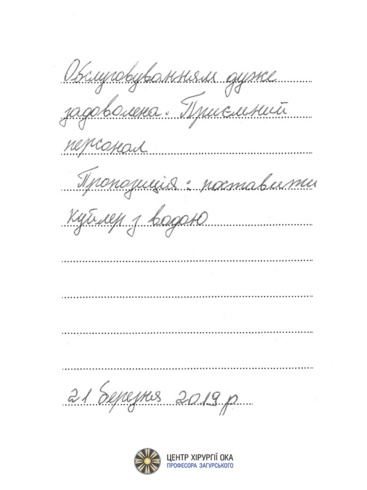 Обслуговуванням дуже
задоволена. Приємний
персонал
Пропозиція: поставити
куйлер з водою
21 березня 2019 р
ЦЕНТР ХІРУРГІЇ ОКА
ПРОФЕСОРА ЗАГУРСЬКОГО